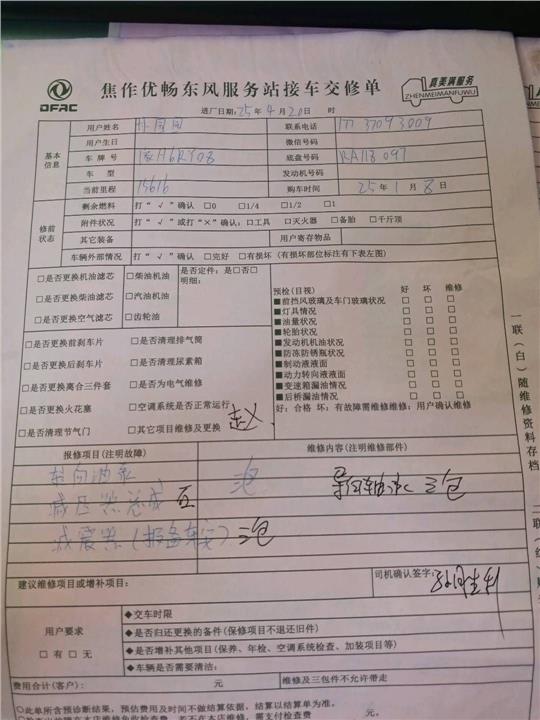 DFAC
焦作优畅东风服务站接车交修单
真美满服务
ZHENMEIMANFUWU
进厂日期:25年4月20日 时
基本信息
用户姓名 联系电话
用户生日 微信号码
车牌号 底盘号码 RA118097
车 型 发动机号码
当前里程 15616 购车时间 25年1月8日
修前状态
剩余燃料 打“√”确认 □0 □1/4 □1/2 □1
附件状况 打“√”或打“×”确认:□工具 □灭火器 □备胎 □千斤顶
其它装备 用户寄存物品
车辆外部情况 打“√”确认 □完好 □有损坏(有损坏部位标注有下表左图)
□是否更换机油滤芯 □柴油机油 是否定件:是□否□
明细:
□是否更换柴油滤芯 □汽油机油
□是否更换空气滤芯 □齿轮油
□是否更换前刹车片 □是否清理排气筒
□是否更换后刹车片 □是否清理尿素箱
□是否更换离合三件套 □是否为电气维修
□是否更换火花塞 □空调系统是否正常运行
□是否清理节气门 □其它项目维修及更换
预检(目视) 好 坏 维修
■前挡风玻璃及车门玻璃状况 □ □ □
■灯具情况 □ □ □
■油量状况 □ □ □
■轮胎状况 □ □ □
■发动机机油状况 □ □ □
■防冻防锈瓶状况 □ □ □
■制动液液面 □ □ □
■动力转向液液面 □ □ □
■变速箱漏油情况 □ □ □
■后桥漏油情况 □ □ □
好:合格 坏:有故障需维修维修:用户确认维修
报修项目(注明故障) 维修内容(注明维修部件)
减震器(报备车间)三包
三包
建议维修项目或增补项目:
司机确认签字:
用户要求
□有 □无
◆交车时限
◆是否归还更换的备件(保修项目不退还旧件)
◆是否增补其他项目(保养、年检、空调系统检查、加装项目等)
◆车辆是否需要清洁:
费用合计(客户): 元 维修及三包件不允许带走
◇此单所含预诊断结果,预估费用及时间不做结算依据,结算以结算单为准。
元。
一联(白)随维修资料存档
二联